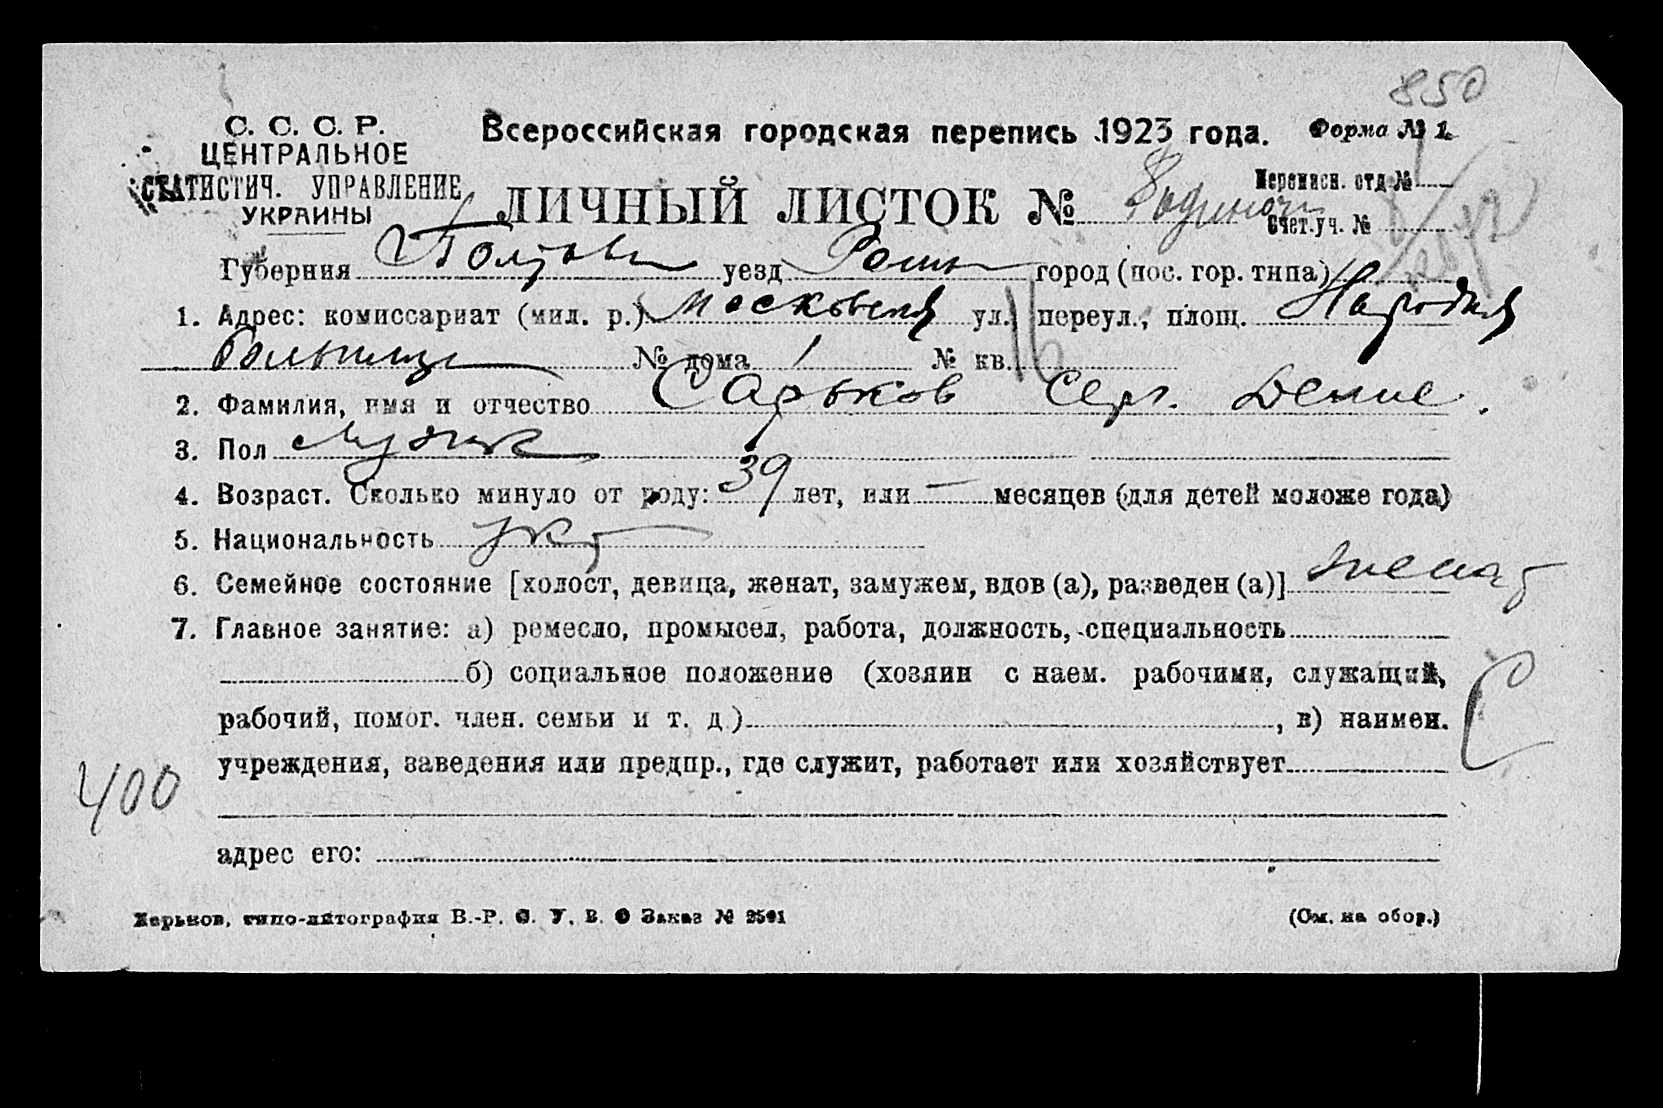 850
С. С. С. Р.
ЦЕНТРАЛЬНОЕ
СТАТИСТИЧ. УПРАВЛЕНИЕ
УКРАИНЫ
Всероссийская городская перепись 1923 года. Форма № 1.
ЛИЧНЫЙ ЛИСТОК №
Переписн. отд №
Счет. уч. №
Губерния Полтавс уезд Ромн город (пос. гор. типа)
1. Адрес: комиссариат (мил. р.) Московская ул., переул., площ. Народная
больница № дома 1 № кв.
2. Фамилия, имя и отчество Сарьков Серг. Дение.
3. Пол мужск
4. Возраст. Сколько минуло от роду: 39 лет, или — месяцев (для детей моложе года)
5. Национальность укр
6. Семейное состояние [холост, девица, женат, замужем, вдов (а), разведен (а)] женат
7. Главное занятие: а) ремесло, промысел, работа, должность, специальность
б) социальное положение (хозяин с наем. рабочими, служащий,
рабочий, помог. член. семьи и т. д.), в) наимен.
учреждения, заведения или предпр., где служит, работает или хозяйствует
400
адрес его:
Харьков, типо-литография В.-Р. С. У. В. О Заказ № 2591
(См. на обор.)